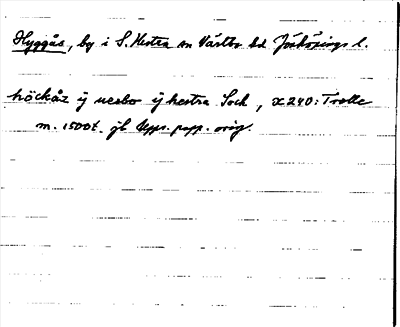 Hyggås, by i S. Hestra sn Västbo hd Jönköpings l.
höckåz ÿ uesbo ÿ hestra Sock, x 240: Trolle
m. 1500t. jb Upps. papp. orig.